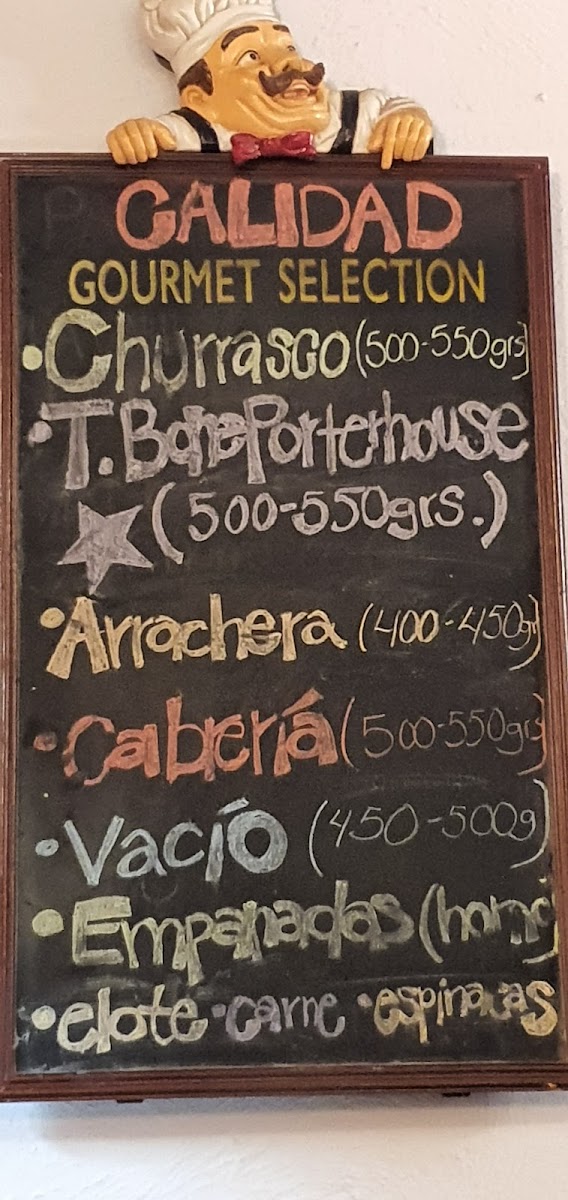 CALIDAD
GOURMET SELECTION
•Churrasco (500-550grs)
•T.Bone Porterhouse
(500-550grs.)
•Arrachera (400-450gr)
•Cabería (500-550grs)
•Vacío (450-500g)
•Empanadas (horno)
•elote •carne •espinacas